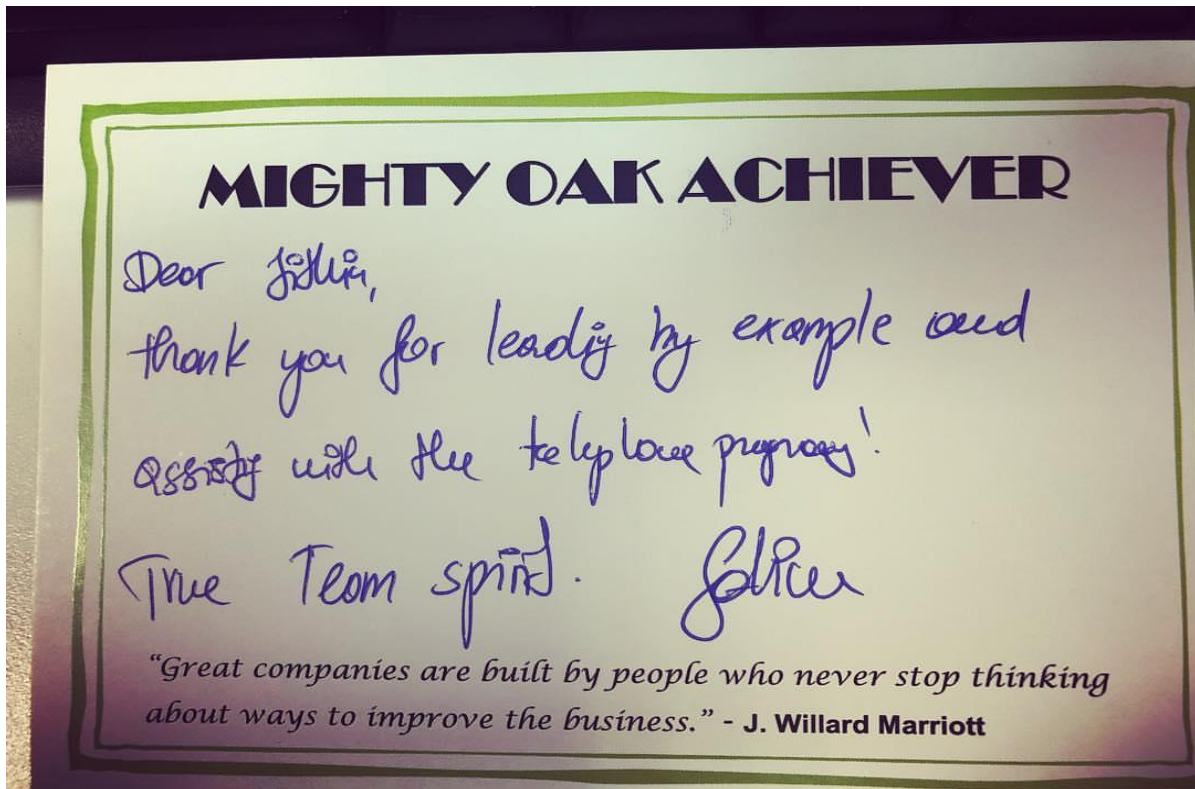 MIGHTY OAK ACHIEVER
Dear Jithin,
thank you for leading by example and
assisting with the telephone
True Team spirit.
“Great companies are built by people who never stop thinking
about ways to improve the business.” - J. Willard Marriott